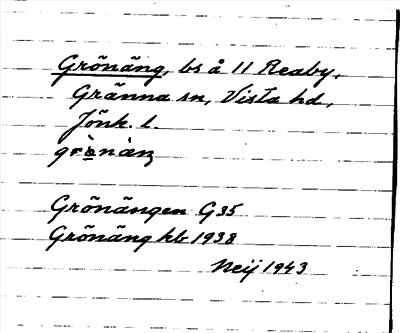 Grönäng, bs å 11 Reaby,
Gränna sn, Vista hd,
Jönk. l.
Grönängen G35
Grönäng kb 1938
Neij 1943